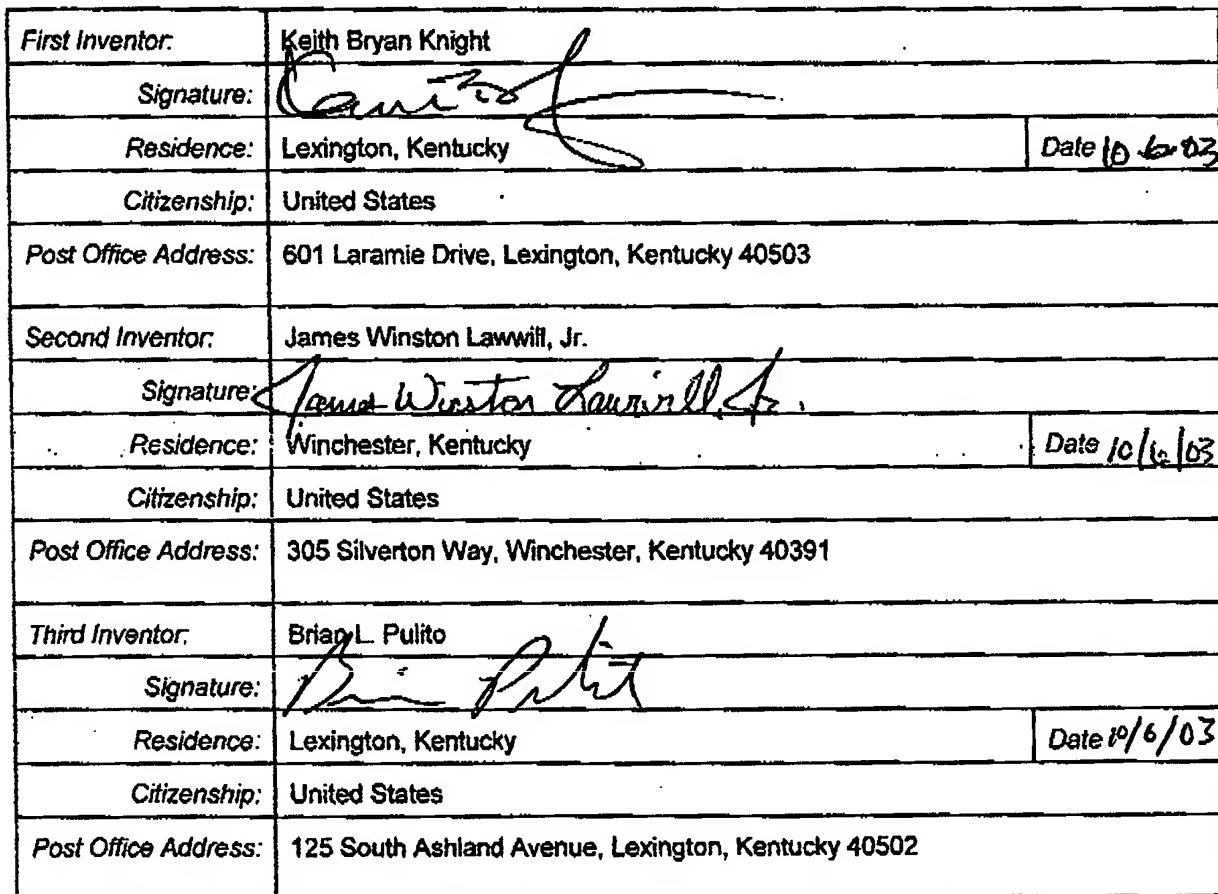 First Inventor: Keith Bryan Knight
Signature:
Residence: Lexington, Kentucky Date 10-6-03
Citizenship: United States
Post Office Address: 601 Laramie Drive, Lexington, Kentucky 40503
Second Inventor: James Winston Lawwill, Jr.
Signature: James Winston Lawwill, Jr.
Residence: Winchester, Kentucky Date 10/6/03
Citizenship: United States
Post Office Address: 305 Silverton Way, Winchester, Kentucky 40391
Third Inventor: Brian L. Pulito
Signature: Brian Pulito
Residence: Lexington, Kentucky Date 10/6/03
Citizenship: United States
Post Office Address: 125 South Ashland Avenue, Lexington, Kentucky 40502